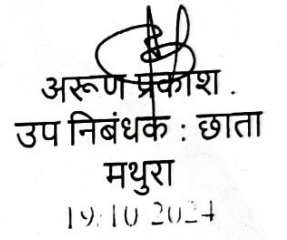 अरूण प्रकाश .
उप निबंधक : छाता
मथुरा
19/10 2024